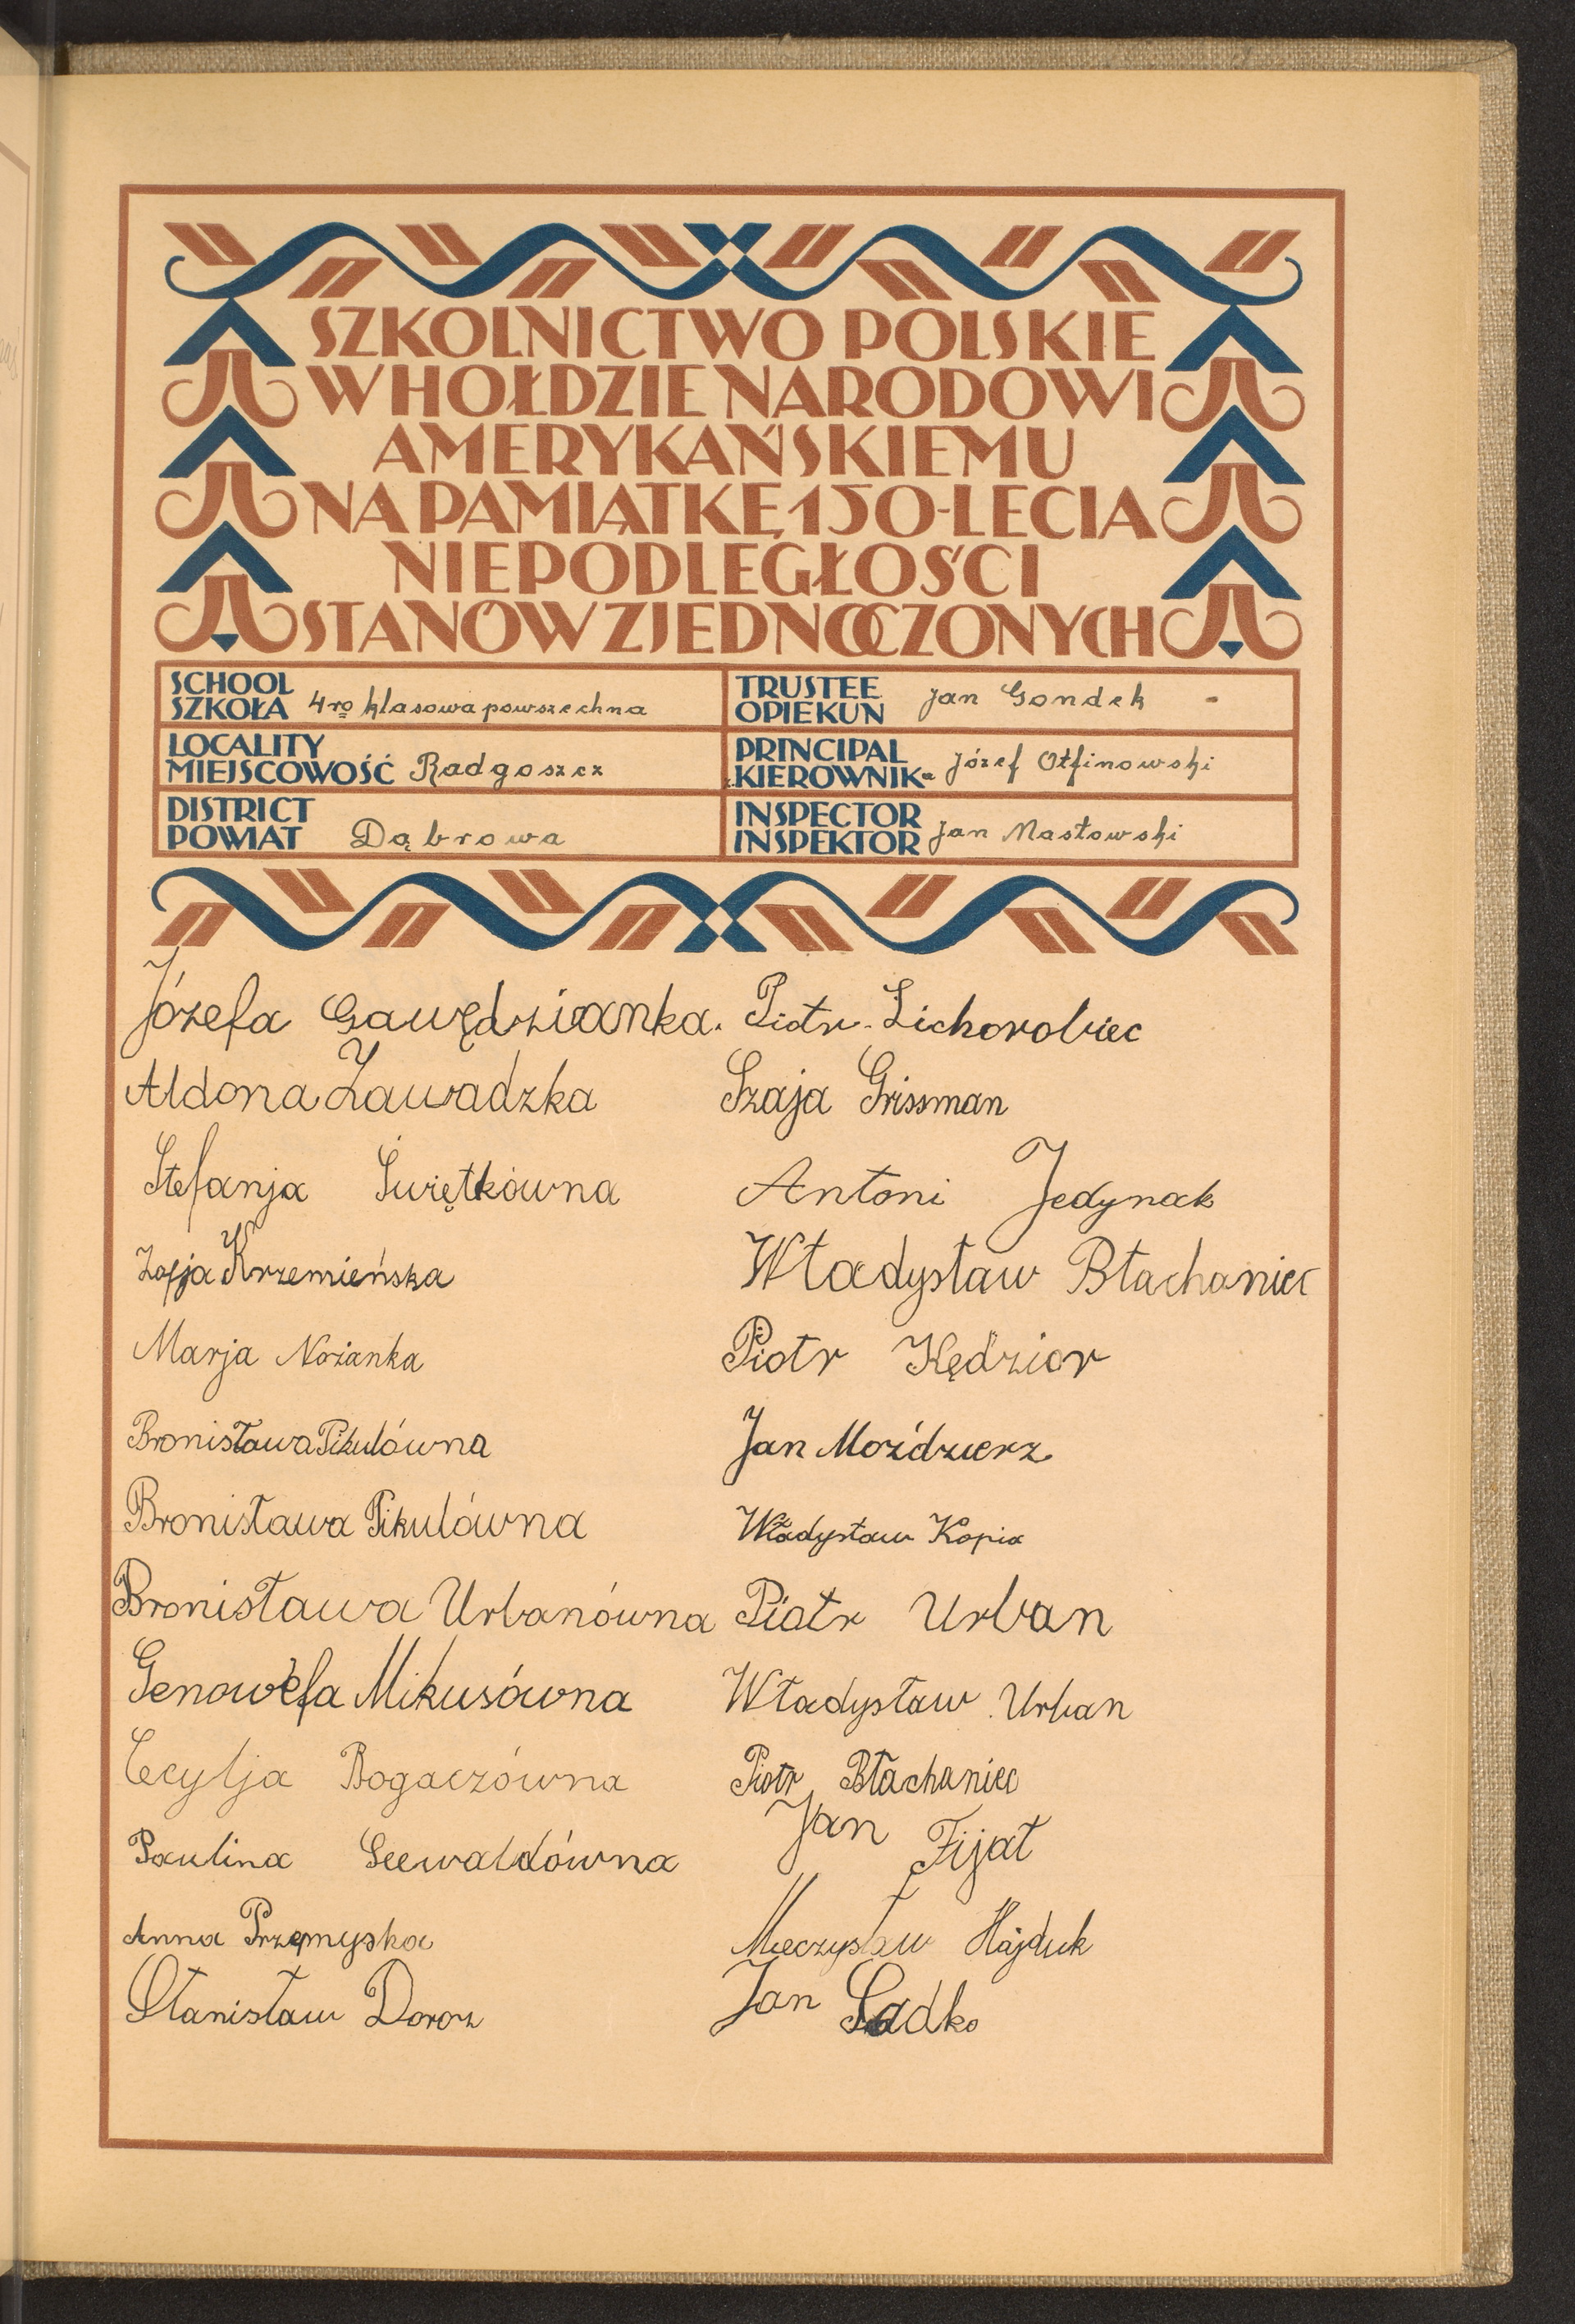 SZKOLNICTWO POLSKIE
W HOŁDZIE NARODOWI
AMERYKAŃSKIEMU
NA PAMIĄTKĘ 150-LECIA
NIEPODLEGŁOŚCI
STANÓW ZJEDNOCZONYCH
SCHOOL
SZKOŁA 4ro klasowa powszechna
TRUSTEE
OPIEKUN Jan Gondek -
LOCALITY
MIEJSCOWOŚĆ Radgoszcz
PRINCIPAL
"KIEROWNIK" Józef Otfinowski
DISTRICT
POWIAT Dąbrowa
INSPECTOR
INSPEKTOR Jan Masłowski
Józefa Gawędzianka.
Aldona Zawadzka
Stefanja Świętkówna
Zofja Krzemieńska
Marja Nożanka
Bronisława Pikulówna
Bronisława Pikulówna
Bronisława Urbanówna
Genowefa Mikusówna
Cecylja Bogaczówna
Paulina Seewaldówna
Anna Przemyska
Stanisław Doroz
Piotr Lichorobiec
Szaja Grissman
Antoni Jedynak
Władysław Błachaniec
Piotr Kędzior
Jan Moździerz
Władysław Kopia
Piotr Urban
Władysław Urban
Piotr Błachaniec
Jan Fijał
Mieczysław Hajduk
Jan Sadko